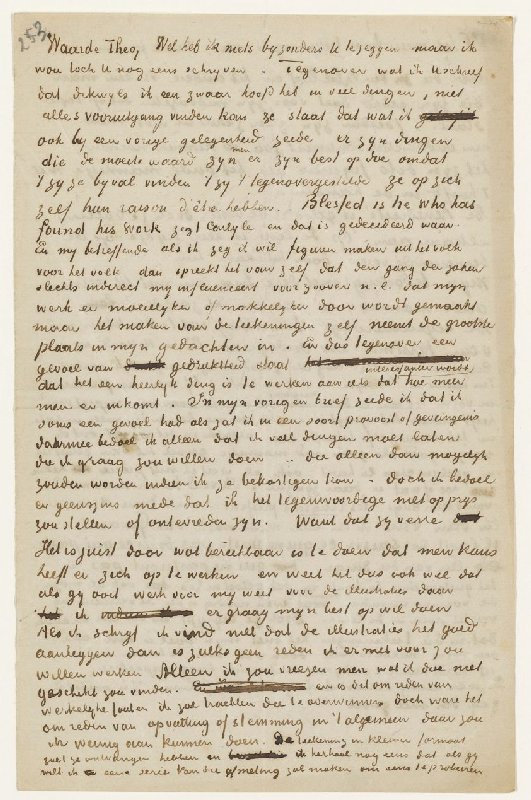 253
Waarde Theo, Wel heb ik niets byzonders U te zeggen maar ik
wou toch U nog eens schryven. Tegenover wat ik U schreef
dat dikwyls ik een zwaar hoofd heb in veel dingen, niet
alles vooruitgang vinden kan ze staat dat wat ik
ook by een vorige gelegenheid zeide er zyn dingen
die de moeite waard zyn men er zyn best op doe omdat
't zy ze byval vinden 't zy 't tegenovergestelde ze op zich
zelf hun raison d'être hebben. Blessed is he who has
found his work zegt Carlyle en dat is gedecideerd waar.
En my betreffende als ik zeg ik wil figuren maken uit het volk
voor het volk dan spreekt het van zelf dat den gang der zaken
slechts indirect my influenceert voor zoover n.l. dat myn
werk er moeielyker of makkelyker door wordt gemaakt
maar het maken van de teekeningen zelf neemt de grootste
plaats in myn gedachten in. En dus tegenover een
gevoel van gedruktheid staat
interessanter wordt
dat het een heerlyk ding is te werken aan iets dat hoe meer
men er inkomt. In myn vorigen brief zeide ik dat ik
soms een gevoel had als zat ik in een soort provoost of gevangenis
daarmee bedoel ik alleen dat ik veel dingen moet laten
die ik graag zou willen doen die alleen dan mogelyk
zouden worden indien ik ze bekostigen kon. Doch ik bedoel
er geenszins mede dat ik het tegenwoordige niet op prys
zou stellen of ontevreden zyn. Want dat zy verre
Het is juist door wat bereikbaar is te doen dat men kans
heeft er zich op te werken en weet het dus ook wel dat
als gy ooit werk voor my weet voor de illustraties daar
ik er graag myn best op wil doen
Als ik schryf ik vind niet dat de illustraties het goed
aanleggen dan is zulks geen reden ik er niet voor zou
willen werken Alleen ik zou vreezen men wat ik doe niet
geschikt zou vinden. en is dit om reden van
werkelyke fouten ik zal trachten die te overwinnen doch ware het
om reden van opvatting of stemming in 't algemeen daar zou
ik weinig aan kunnen doen. De teekening in kleiner formaat
zult ge ontvangen hebben en ik herhaal nog eens dat als gy
wilt ik eene serie van die afmeting zal maken om eens te probeeren